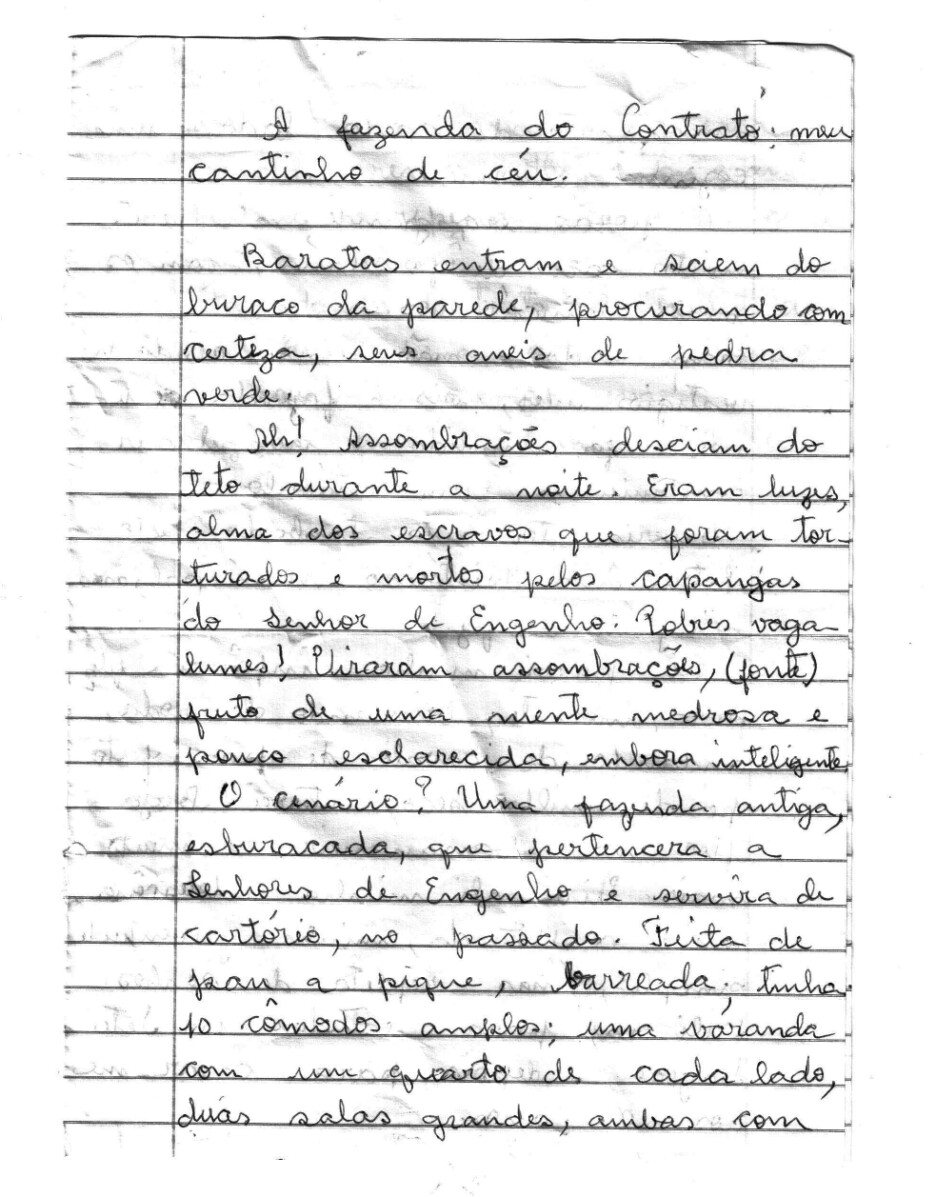 A fazenda do Contrato: meu
cantinho de céu.
Baratas entram e saem do
buraco da parede, procurando com
certeza, seus aneis de pedra
verde.
Ah! Assombrações desciam do
teto durante a noite. Eram luzes,
alma dos escravos que foram tor-
turados e mortos pelos capangas
do Senhor de Engenho. Pobres vaga-
lumes! Viraram assombrações, (fonte)
fruto de uma mente medrosa e
pouco esclarecida, embora inteligente.
O cenário? Uma fazenda antiga,
esburacada, que pertencera a
Senhores de Engenho e servira de
cartório, no passado. Feita de
pau a pique, barreada; tinha
10 cômodos amplos; uma varanda
com um quarto de cada lado,
duas salas grandes, ambas com